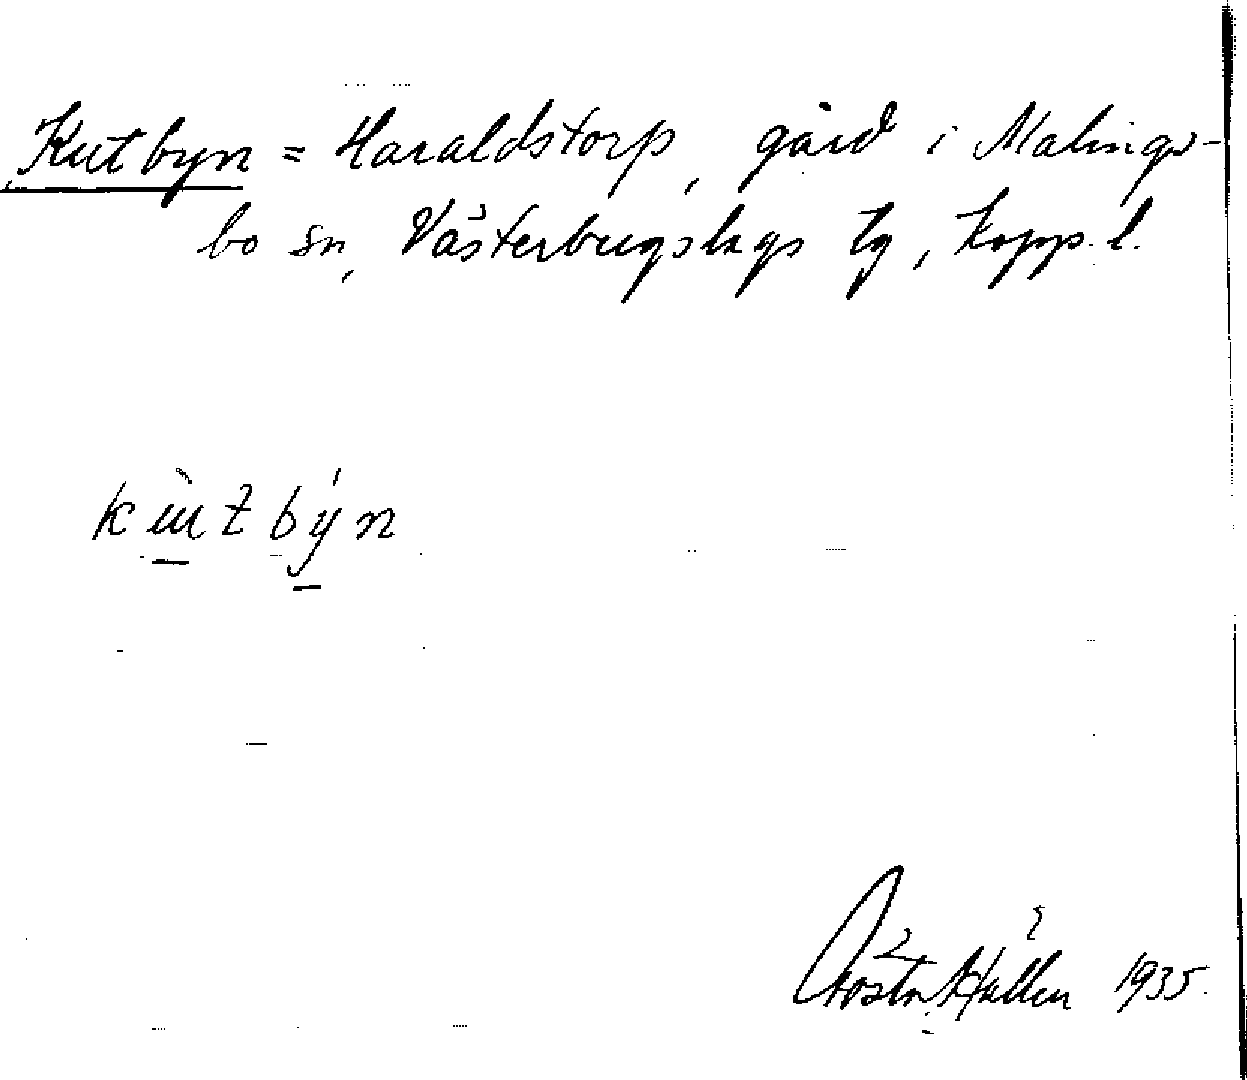 Kutbyn = Haraldstorp, gård i Malings-
bo sn, Västerbergslags tg, Kopp. l.
kùtbýn
Gösta Hallén 1935.